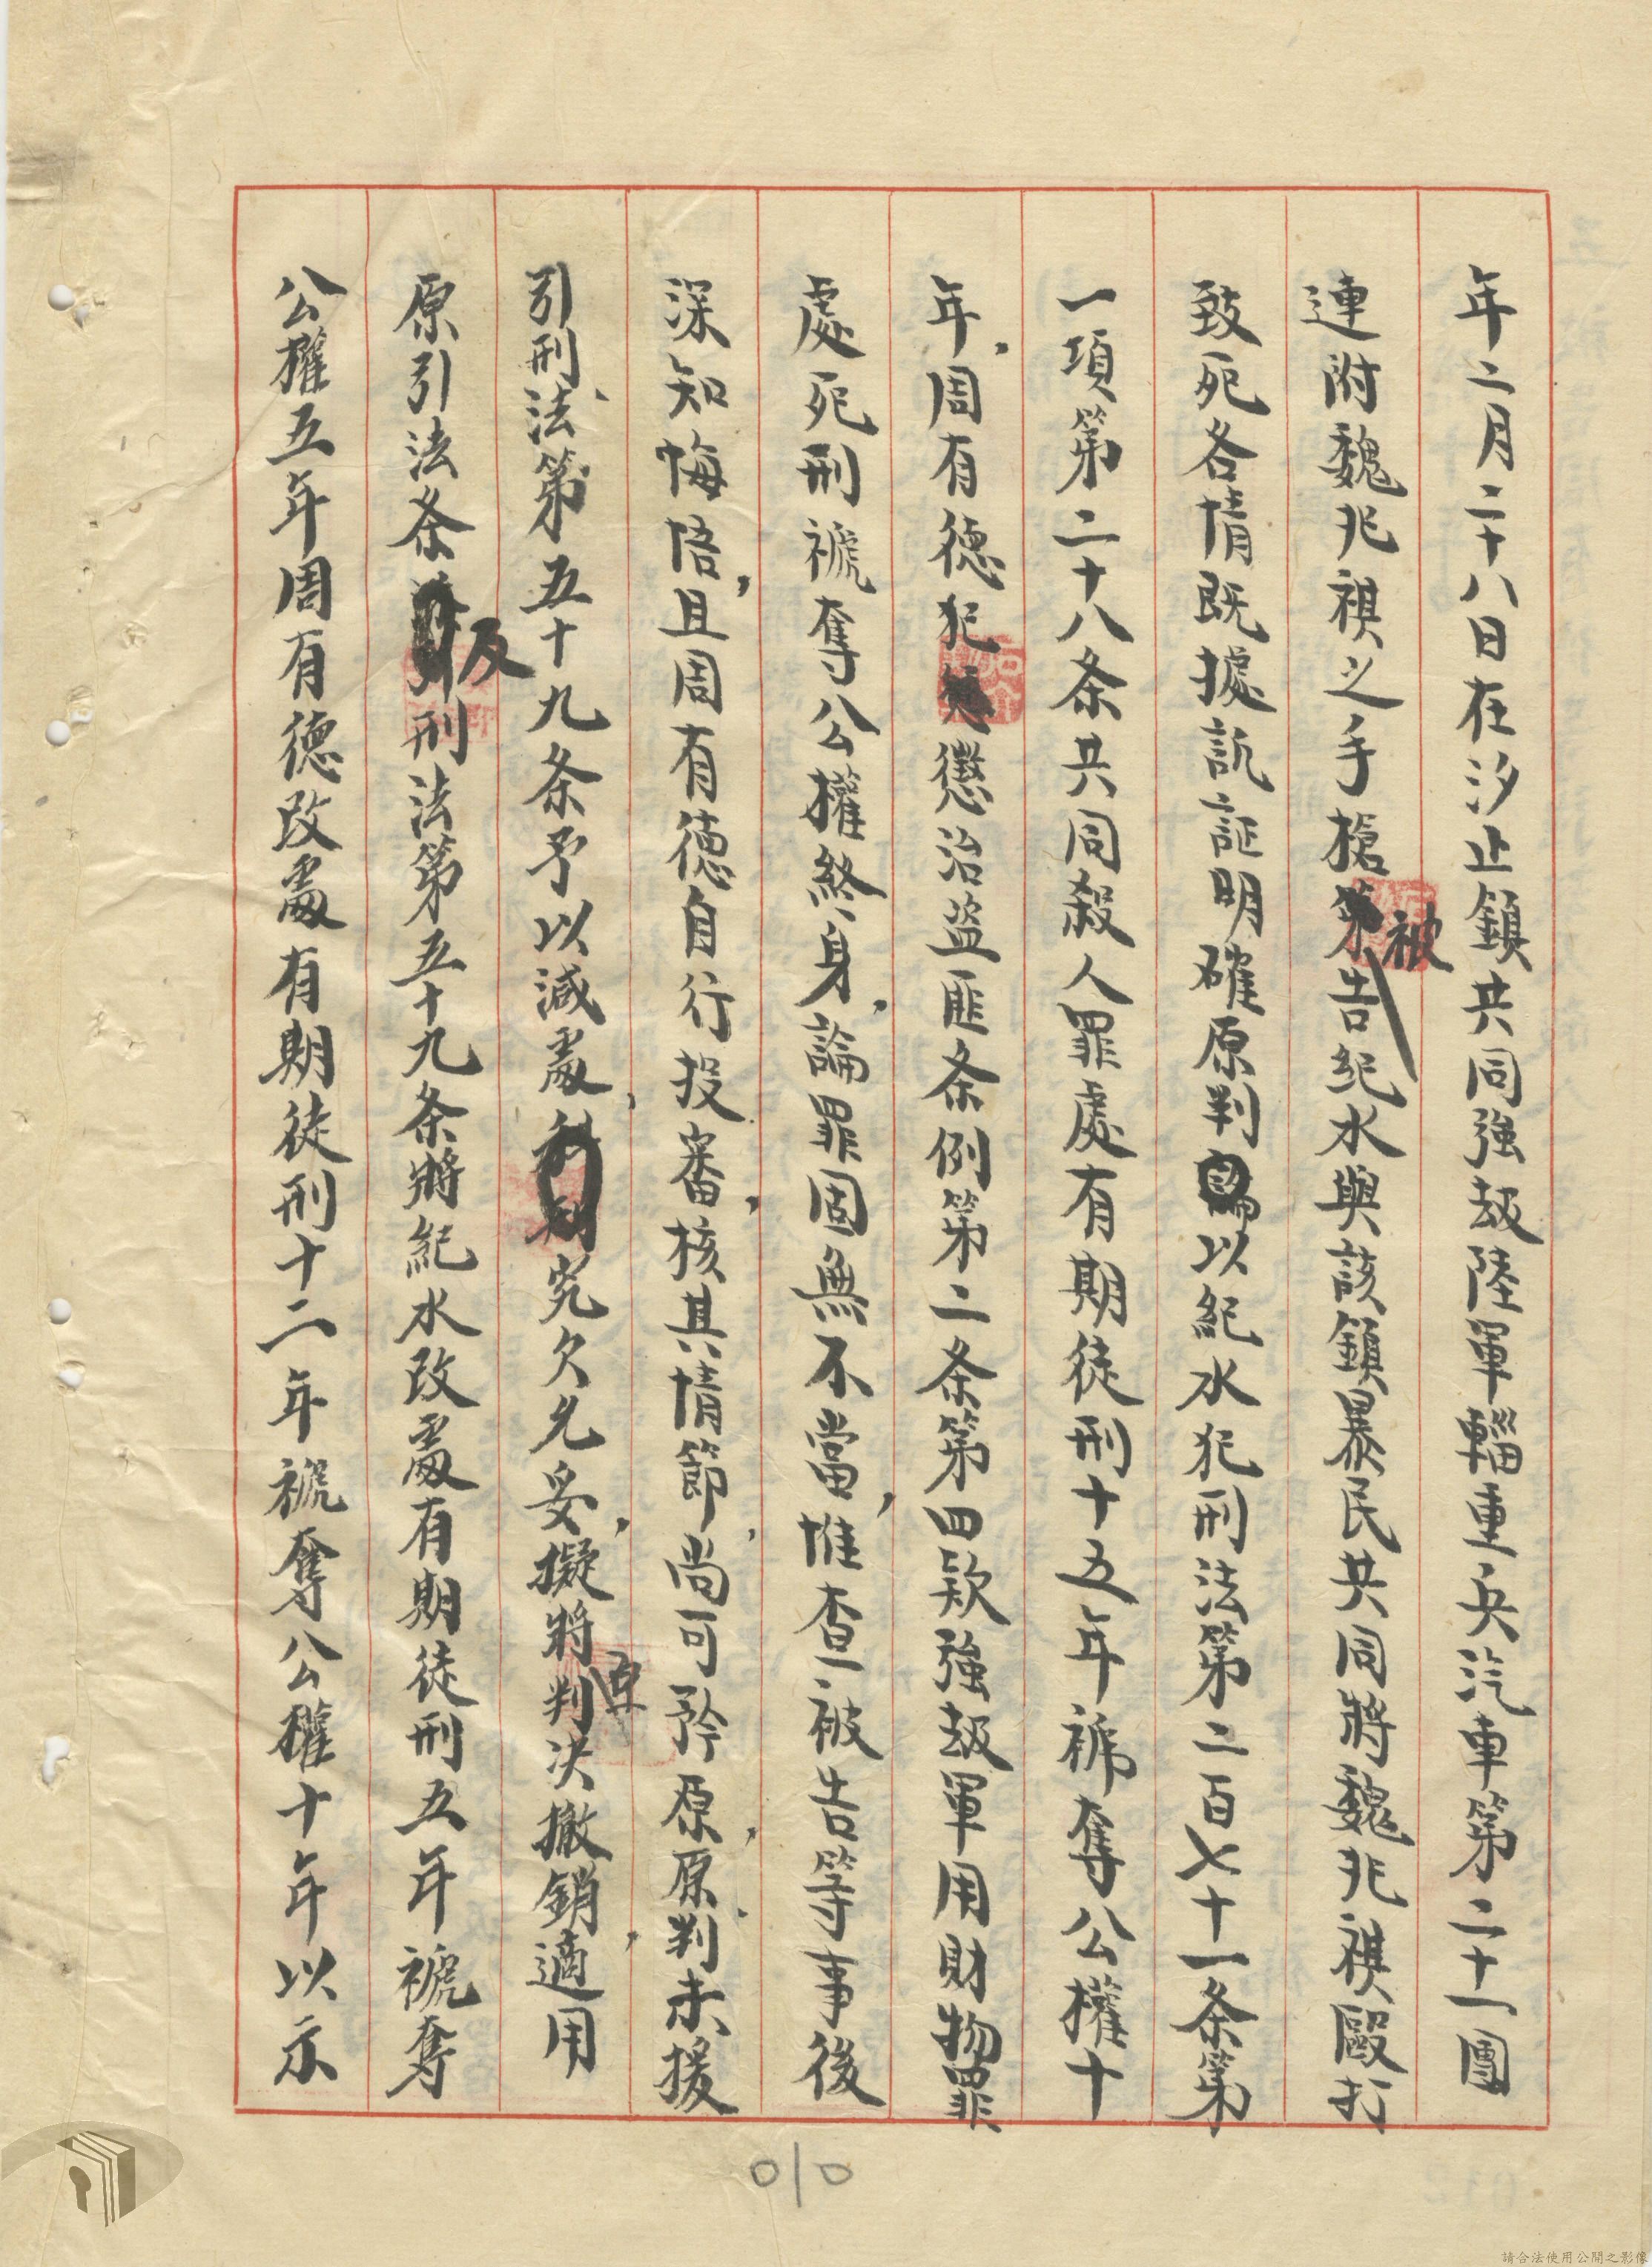 年二月二十八日在汐止鎮共同強刼陸軍輜重兵汽車第二十一團
連附魏兆祺之手槍被告紀水與該鎮暴民共同將魏兆祺毆打
致死各情既據訊証明確原判以紀水犯刑法第二百七十一条第
一項第二十八条共同殺人罪處有期徒刑十五年褫奪公權十
年，周有德犯懲治盜匪条例第二条第四款強刼軍用財物罪
處死刑褫奪公權終身，論罪固無不當，惟查被告等事後
深知悔悟，且周有德自行投審，核其情節，尚可矜原，原判未援
引刑法第五十九条予以減處，究欠允妥，擬將原判決撤銷，適用
原引法条及刑法第五十九条將紀水改處有期徒刑五年褫奪
公權五年周有德改處有期徒刑十二年褫奪公權十年以示
010
請合法使用公開之影像